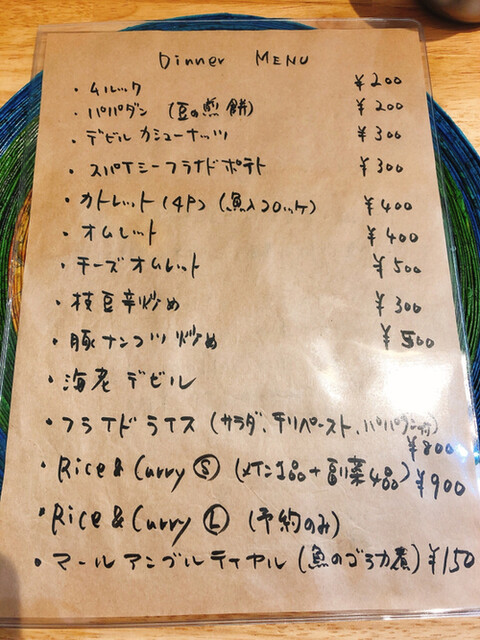 Dinner MENU
・ムルック ¥200
・パパダン (豆の煎餅) ¥200
・デビルカシューナッツ ¥300
・スパイシーフライドポテト ¥300
・カトレット(4P)(魚入コロッケ) ¥400
・オムレット ¥400
・チーズオムレット ¥500
・枝豆辛炒め ¥300
・豚ナンコツ炒め ¥500
・海老デビル
・フライドライス (サラダ、チリペースト、パパダン付) ¥800
・Rice & Curry Ⓢ (メイン1品+副菜4品) ¥900
・Rice & Curry Ⓛ (予約のみ)
・マールアンブルティヤル (魚のゴラカ煮) ¥150